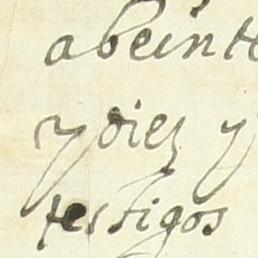 abeinte
y diez y
testigos